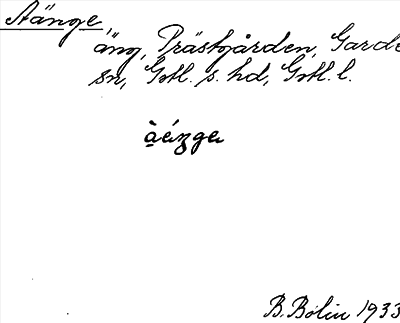 Aänge,
äng, Prästgården, Garde
sn, Gotl. s. hd, Gotl. l.
B. Bolin 1933